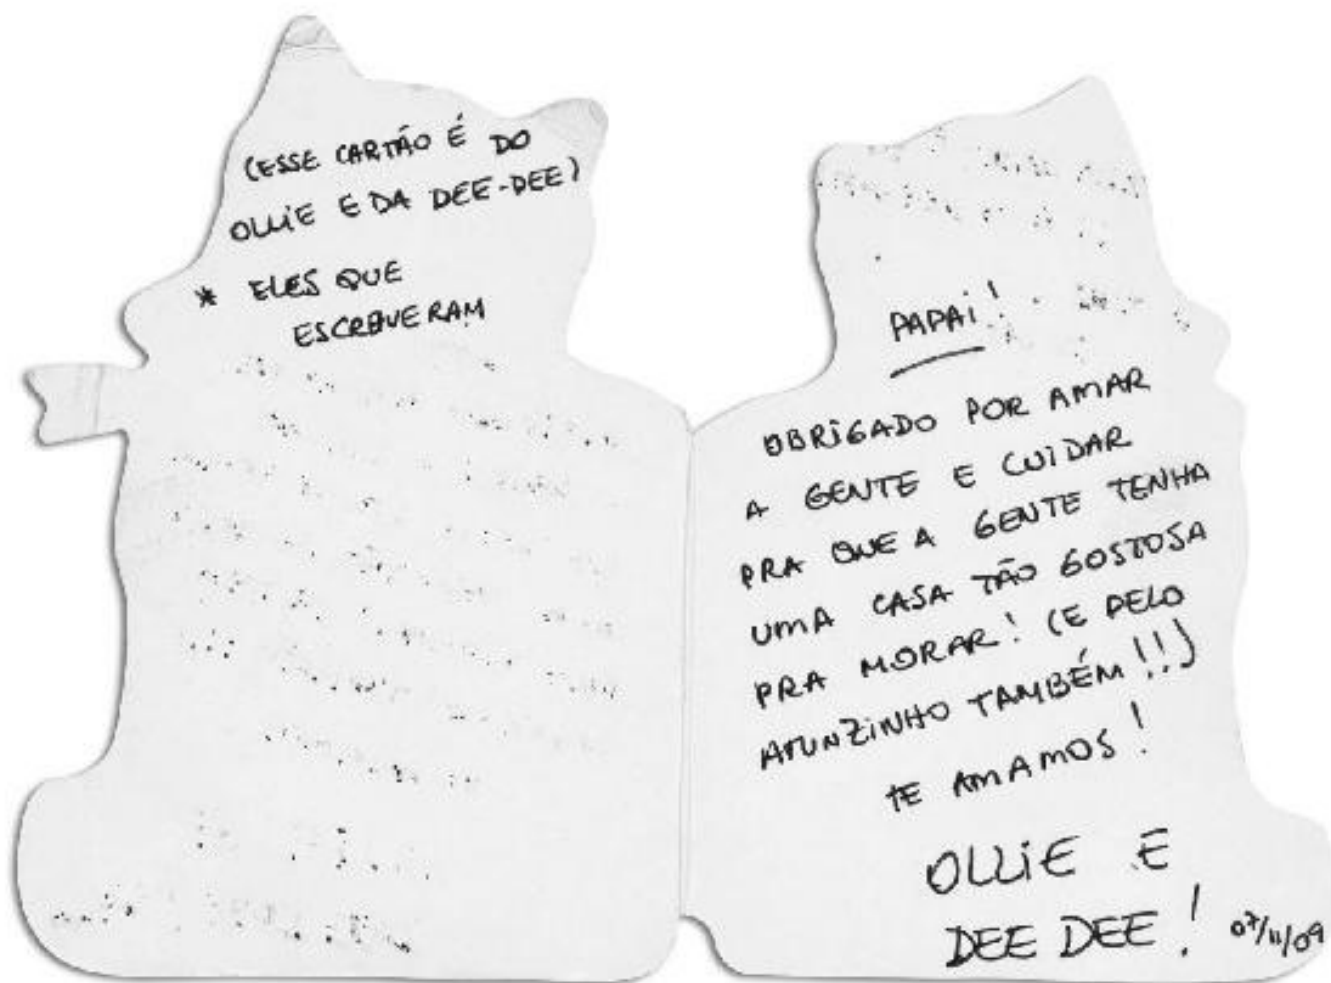 (ESSE CARTÃO É DO
OLLIE E DA DEE-DEE)
* ELES QUE
ESCREVERAM
PAPAI!
OBRIGADO POR AMAR
A GENTE E CUIDAR
PRA QUE A GENTE TENHA
UMA CASA TÃO GOSTOSA
PRA MORAR! (E PELO
ATUNZINHO TAMBÉM!!)
TE AMAMOS!
OLLIE E
DEE DEE!
07/11/09